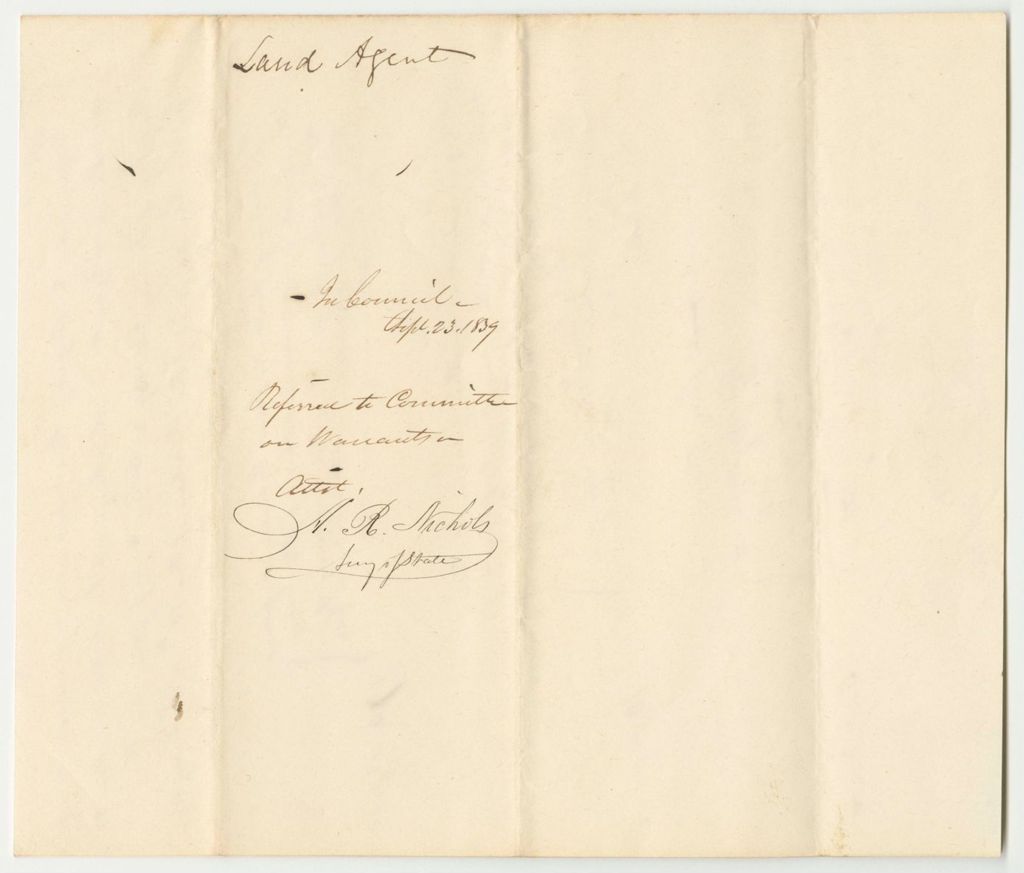 Land Agent
In Council
Sept. 23. 1839
Referred to Committee
on Warrants
Attest,
A. R. Nichols
Secy of State